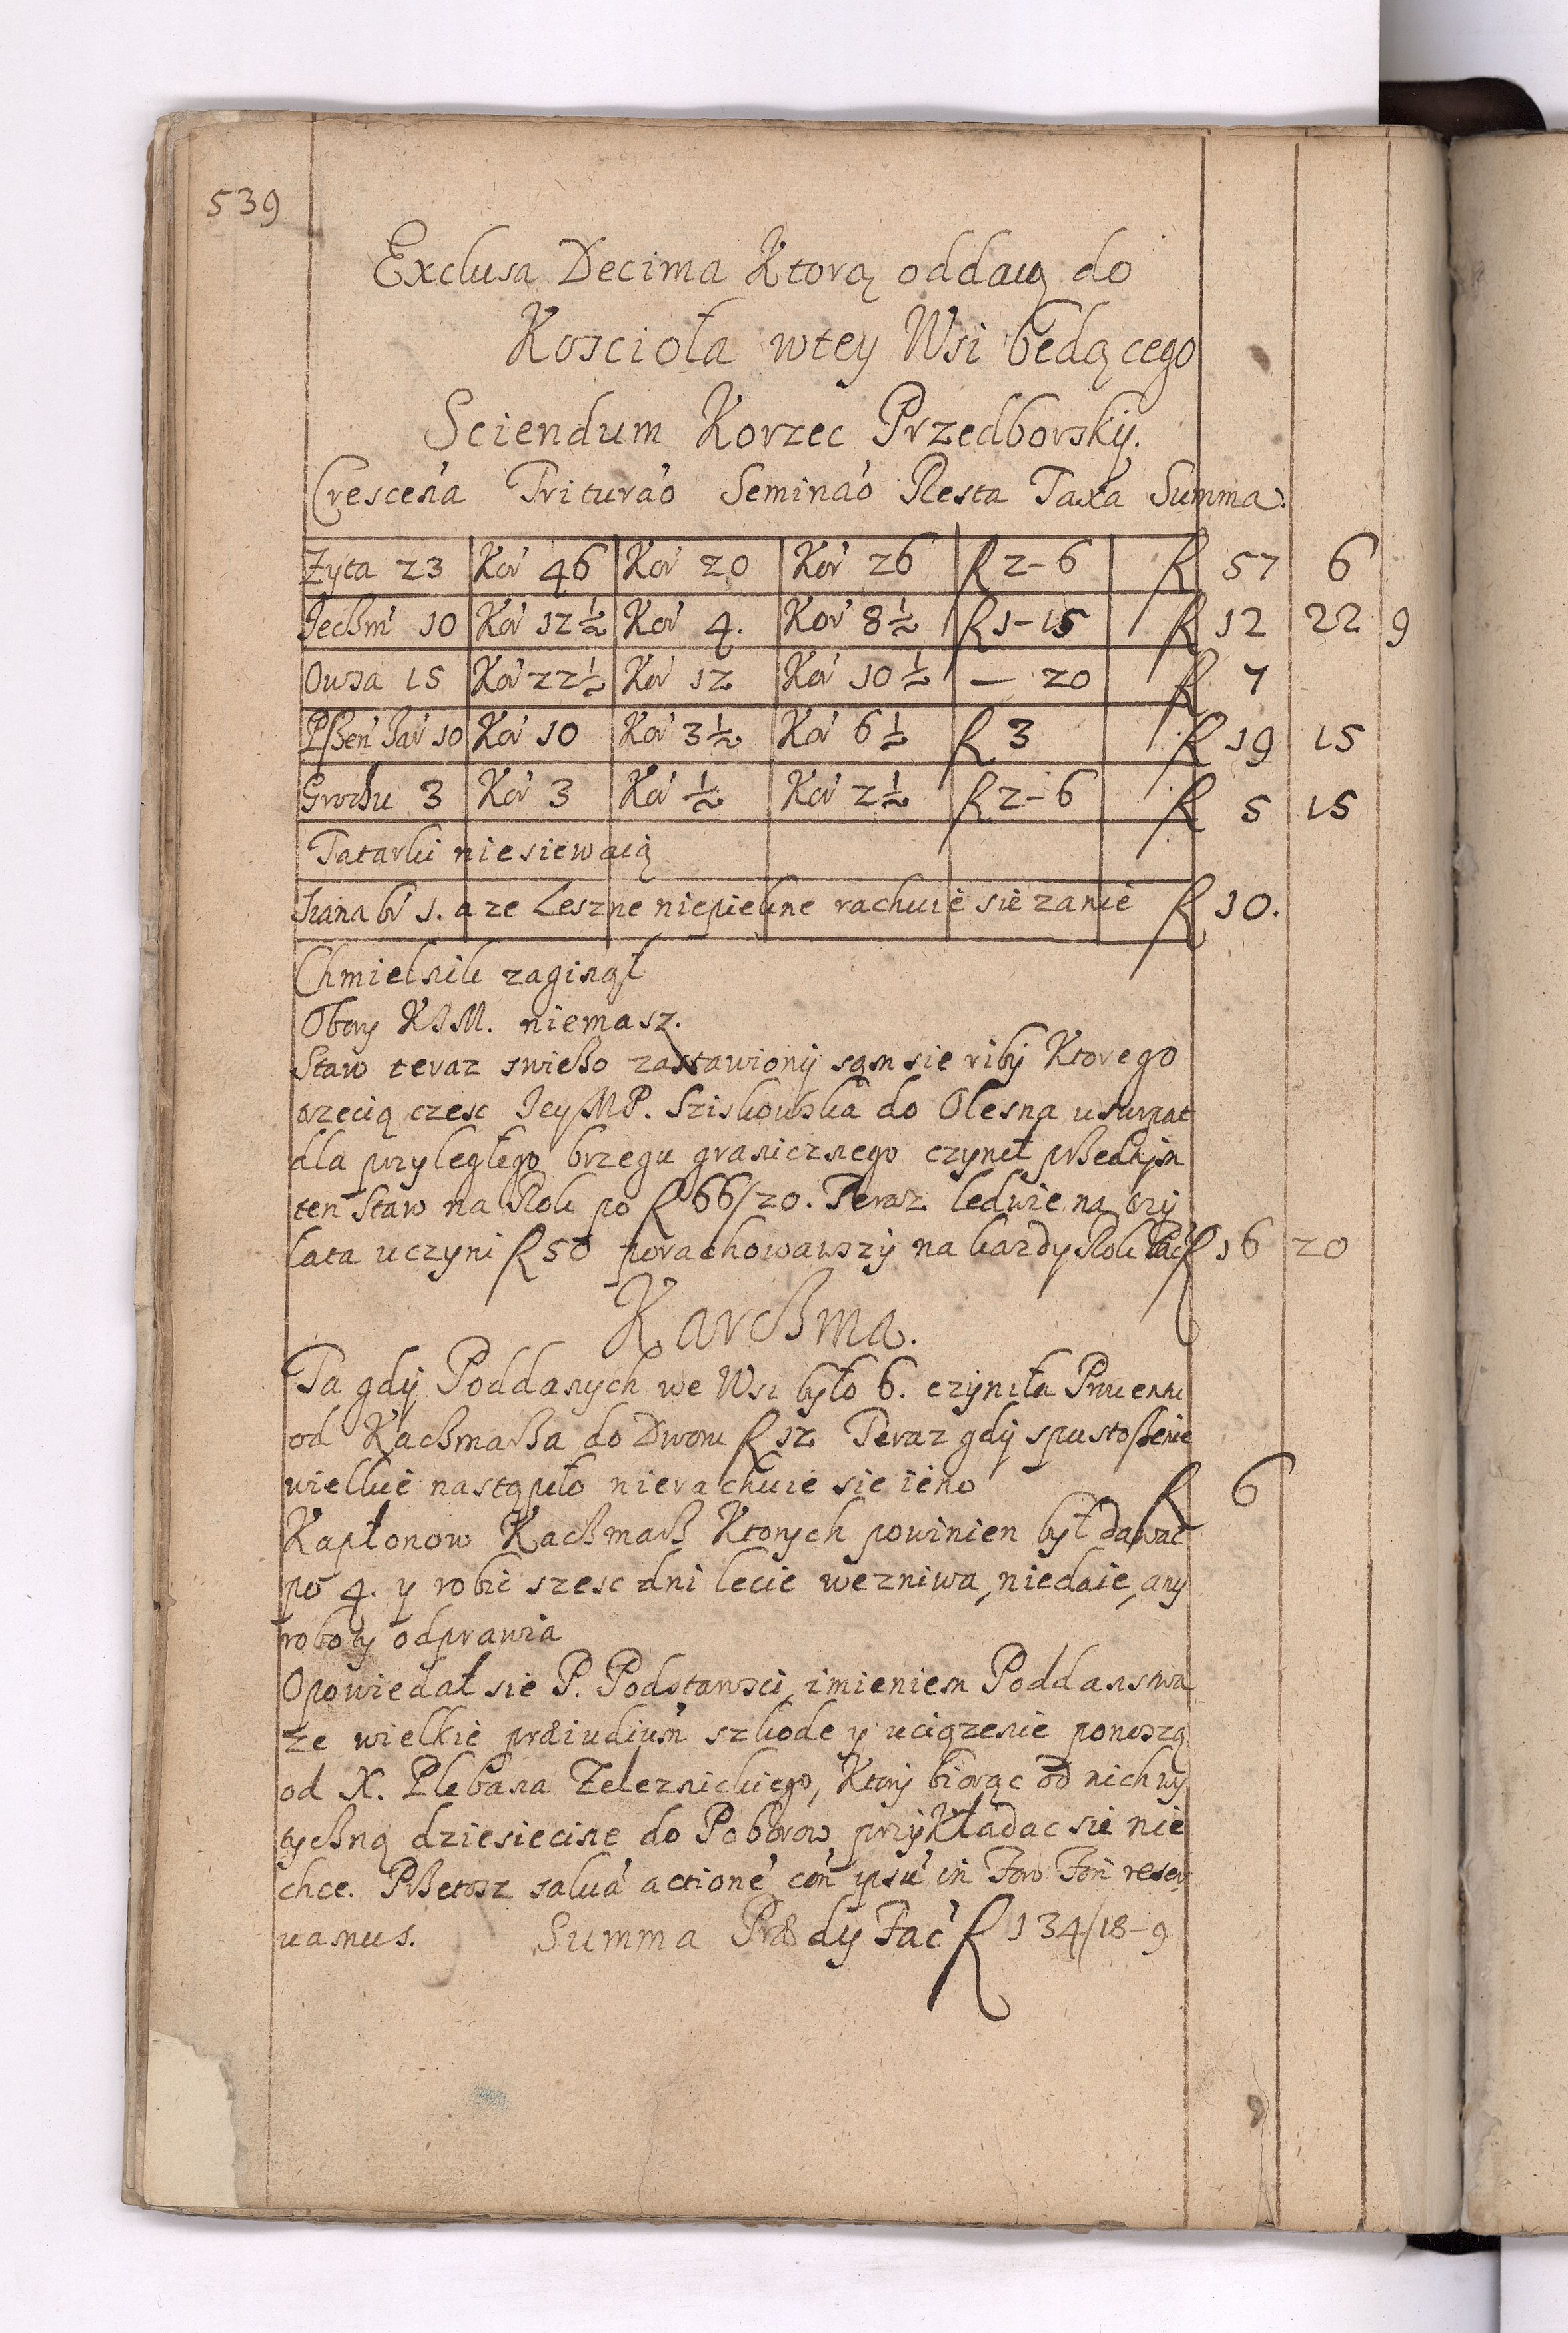 539
Exclusa Decima Ktorą oddaią do
Koscioła wtey Wsi będącego
Sciendum Korzec Przedborsky.
Crescen̄a Triturao Seminao Resta Taxa Summa.
Zyta 23 Kor 46 Kor 20 Kor 26 f 2-6 f 57 6
Jechm 10 Kor 12½ Kor 4. Kor 8½ f 1-15 f 12 22 9
Owsa 15 Kor 22½ Kor 12 Kor 10½ — 20 f 7
Pszen Jar 10 Kor 10 Kor 3½ Kor 6½ f 3 f 19 15
Grochu 3 Kor 3 Kor ½ Kor 2½ f 2-6 f 5 15
Tatarki niesiewaią
Siana br 1. a ze Leszne niepiekne rachuie się zanie f 10.
Chmielnik zaginął
Obory KJM. niemasz.
Staw teraz swieżo zastawiony są w nie riby Ktorego
trzecią czesc JeyMP. do Olesna
dla przyległego brzegu granicznego czynił przedtym
ten Staw na Rok po f 66/20. Teraz ledwie na trzy
lata uczyni f 50 porachowawszy na kazdy Rok Fac f 16 20
Karczma.
Ta gdy Poddanych we Wsi było 6. czyniła Prouentu
od Kaczmarza do Dworu f 12 Teraz gdy spustoszenie
wielkie nastąpiło nierachuie sie ieno f 6
Kapłonow Kaczmarz Ktorych powinien był dawac
po 4. y robic szesc dni lecie wezniwa, niedaie, any
roboty odprawia
Opowiedał sie P. Podstarosci, imieniem Poddanstwa
ze wielkie præiudium szkode y uciązenie ponoszą
od X. Plebana Zeleznickiego, Ktory biorąc od nich wy
tyczną dziesiecine do Poborow przykładac sie nie
chce. Przetosz salua actione con ipsu in Foro Fori reser
uamus. Summa Prædy Fac f 134/18-9